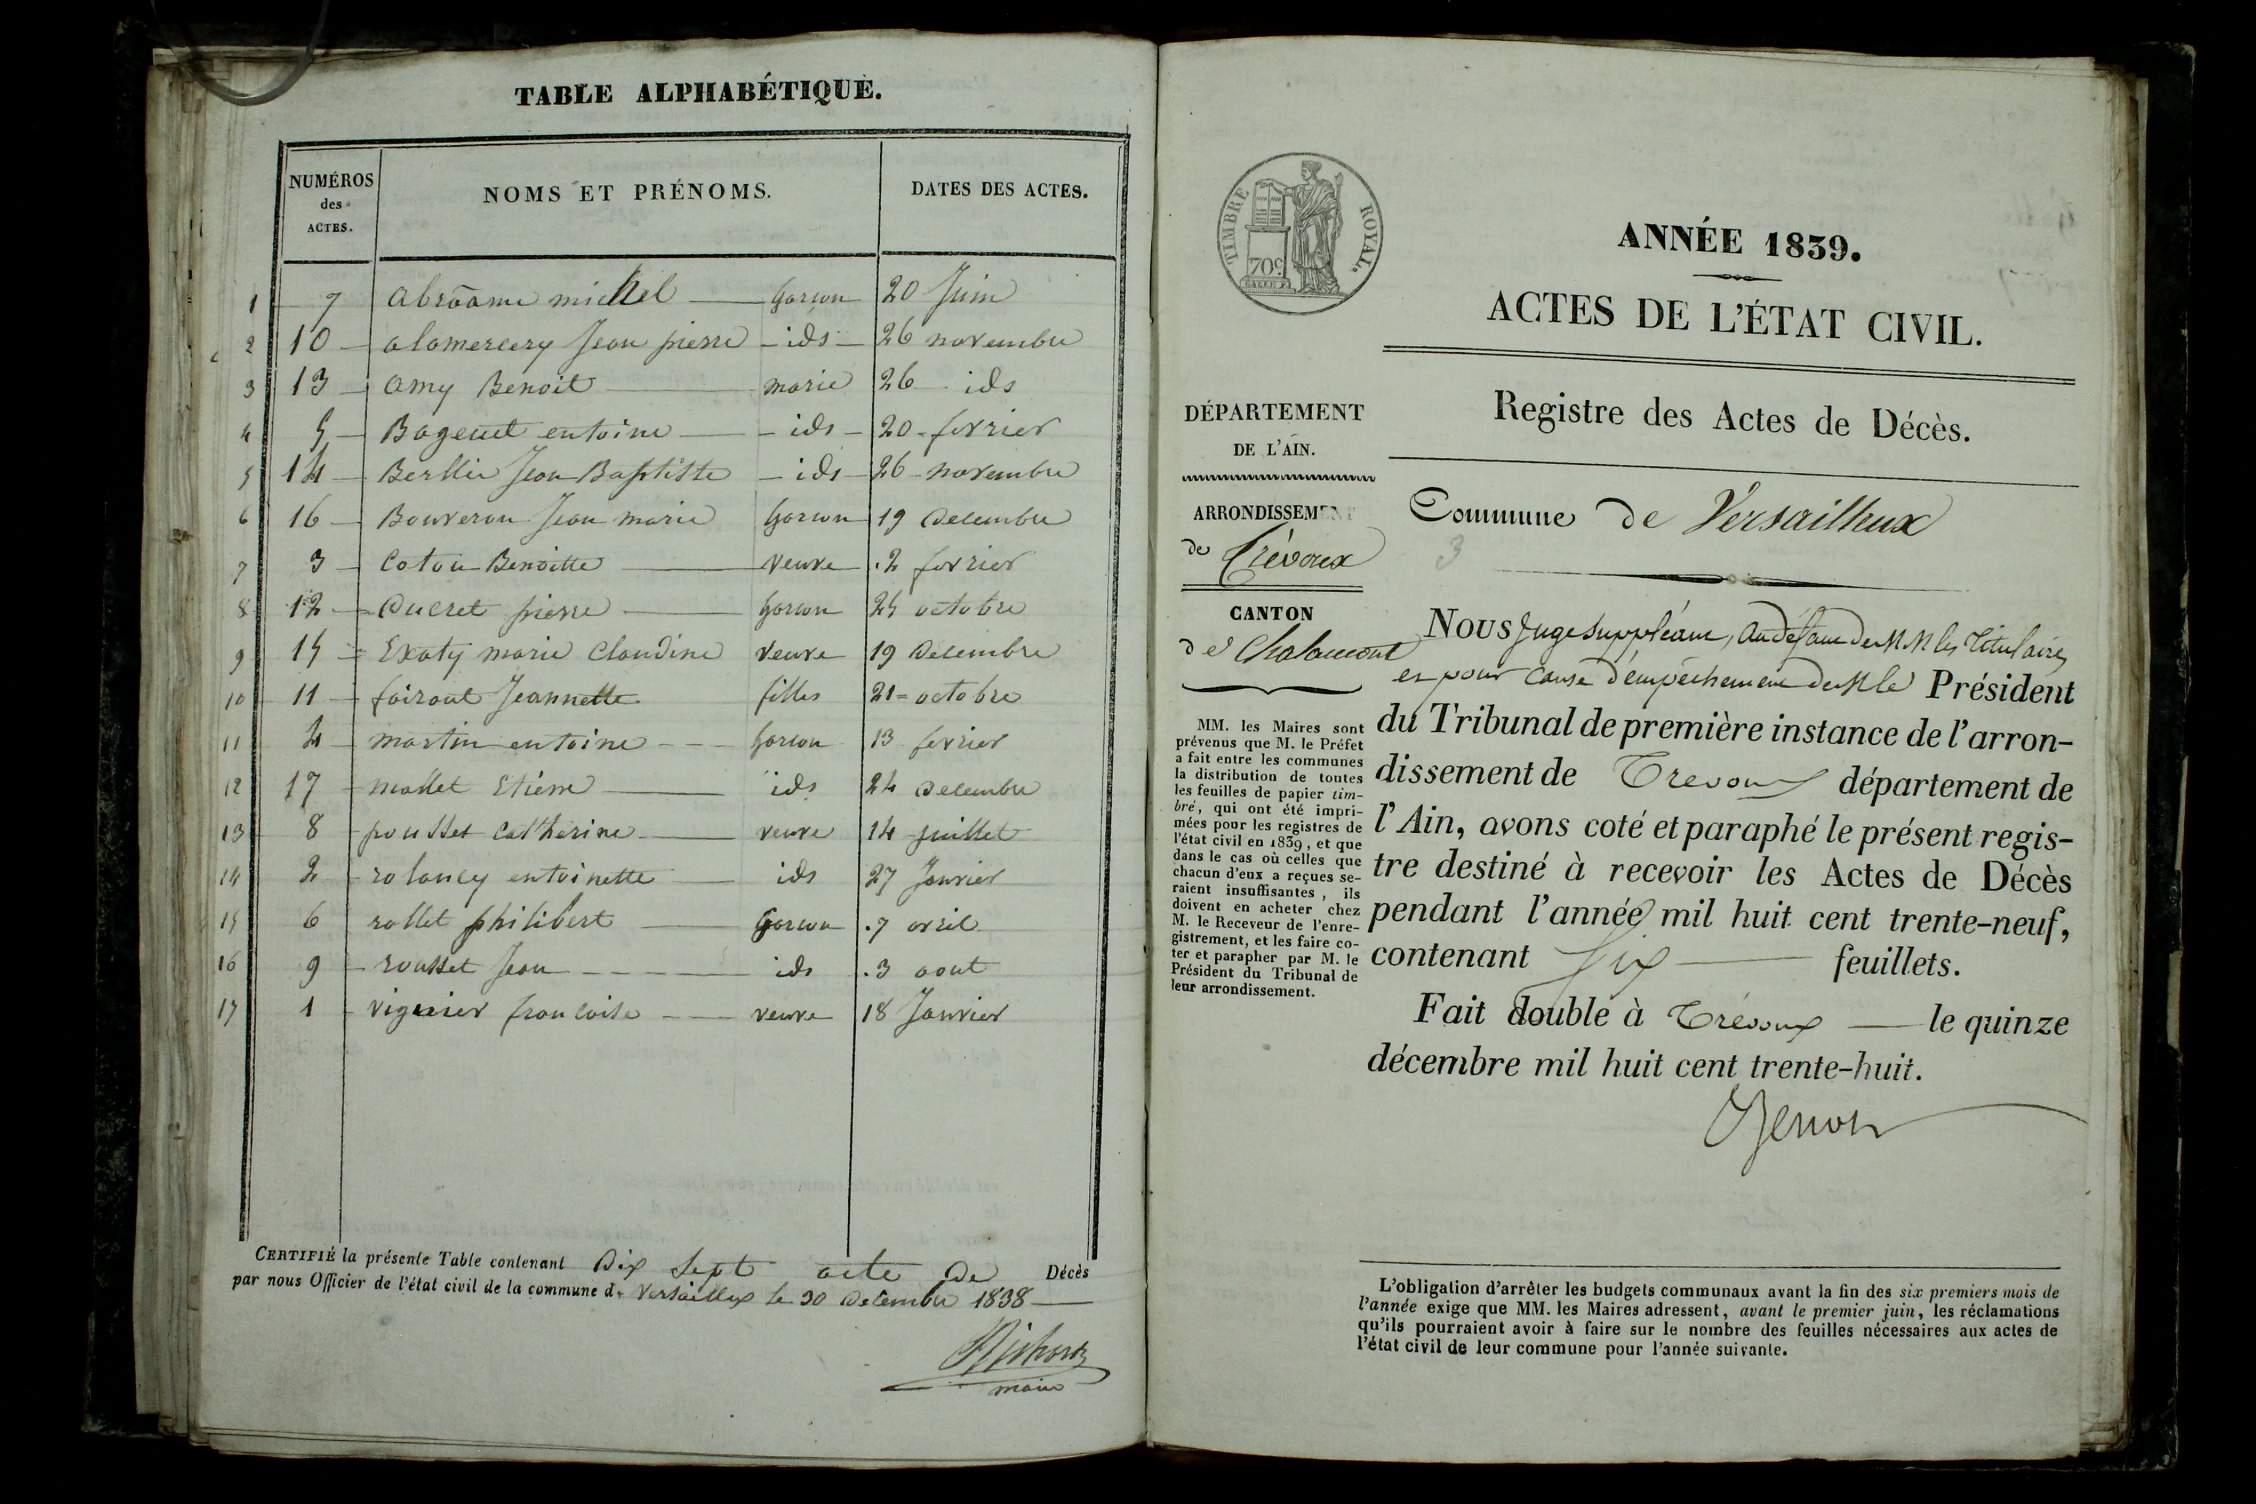 TABLE ALPHABÉTIQUE.
NUMÉROS des ACTES. NOMS ET PRÉNOMS. DATES DES ACTES.
1 7 abraame michel garcon 20 Juin
2 10 alamercery Jean pierre ids 26 novembre
3 13 amy Benoit marie 26 ids
4 5 entoine ids 20 fevrier
5 14 Jean Baptiste ids 26 novembre
6 16 Bouveron Jean marie garcon 19 Decembre
7 3 Benoitte veuve .2 fevrier
8 12 Ducret pierre garcon 25 octobre
9 15 marie Claudine veuve 19 Decembre
10 11 Jeannette filles 21 octobre
11 4 martin entoine garcon 13 fevrier
12 17 mallet ids 24 Decembre
13 8 pousset catherine veuve 14 juillet
14 2 entoinette ids 27 Janvier
15 6 rollet philibert garcon .7 avril
16 9 rousset Jean ids .3 aout
17 1 francoise veuve 18 Janvier
CERTIFIÉ la présente Table contenant Dix Sept acte de Décès
par nous Officier de l'état civil de la commune d. Versailleux le 30 Decembre 1838
maire
TIMBRE ROYAL.
70c
ANNÉE 1839.
ACTES DE L'ÉTAT CIVIL.
Registre des Actes de Décès.
DÉPARTEMENT
DE L'AIN.
ARRONDISSEMENT
de Trévoux
CANTON
de Chalamont
MM. les Maires sont
prévenus que M. le Préfet
a fait entre les communes
la distribution de toutes
les feuilles de papier tim-
bré, qui ont été impri-
mées pour les registres de
l'état civil en 1839, et que
dans le cas où celles que
chacun d'eux a reçues se-
raient insuffisantes, ils
doivent en acheter chez
M. le Receveur de l'enre-
gistrement, et les faire co-
ter et parapher par M. le
Président du Tribunal de
leur arrondissement.
Commune de Versailleux
3
NOUS Juge Suppléant, au défaut de MM les Titulaires
et pour cause d'empêchement de M le Président
du Tribunal de première instance de l'arron-
dissement de Trevoux département de
l'Ain, avons coté et paraphé le présent regis-
tre destiné à recevoir les Actes de Décès
pendant l'année mil huit cent trente-neuf,
contenant Six feuillets.
Fait double à Trévoux le quinze
décembre mil huit cent trente-huit.
L'obligation d'arrêter les budgets communaux avant la fin des six premiers mois de
l'année exige que MM. les Maires adressent, avant le premier juin, les réclamations
qu'ils pourraient avoir à faire sur le nombre des feuilles nécessaires aux actes de
l'état civil de leur commune pour l'année suivante.